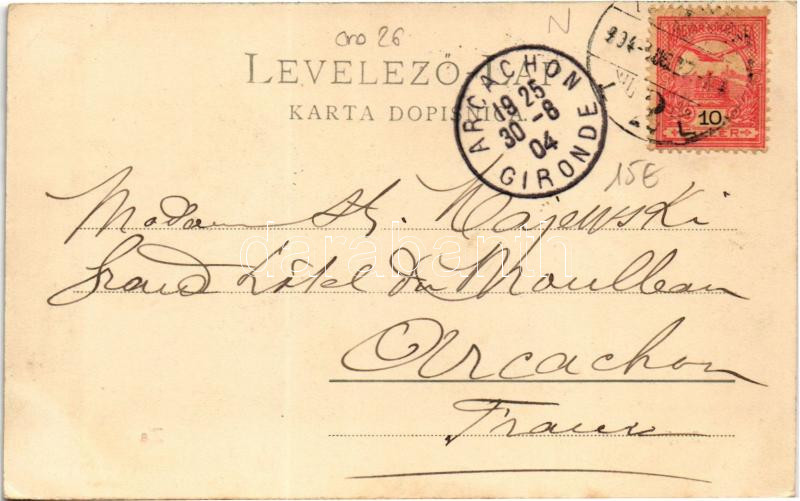 cro 26
N
LEVELEZŐ LAP
KARTA DOPISNICA.
ARCACHON
19 25
30 -8
04
GIRONDE
10
15E
Madame St. Majewski
Grand Hôtel du Moulleau
Arcachon
France
darabanth